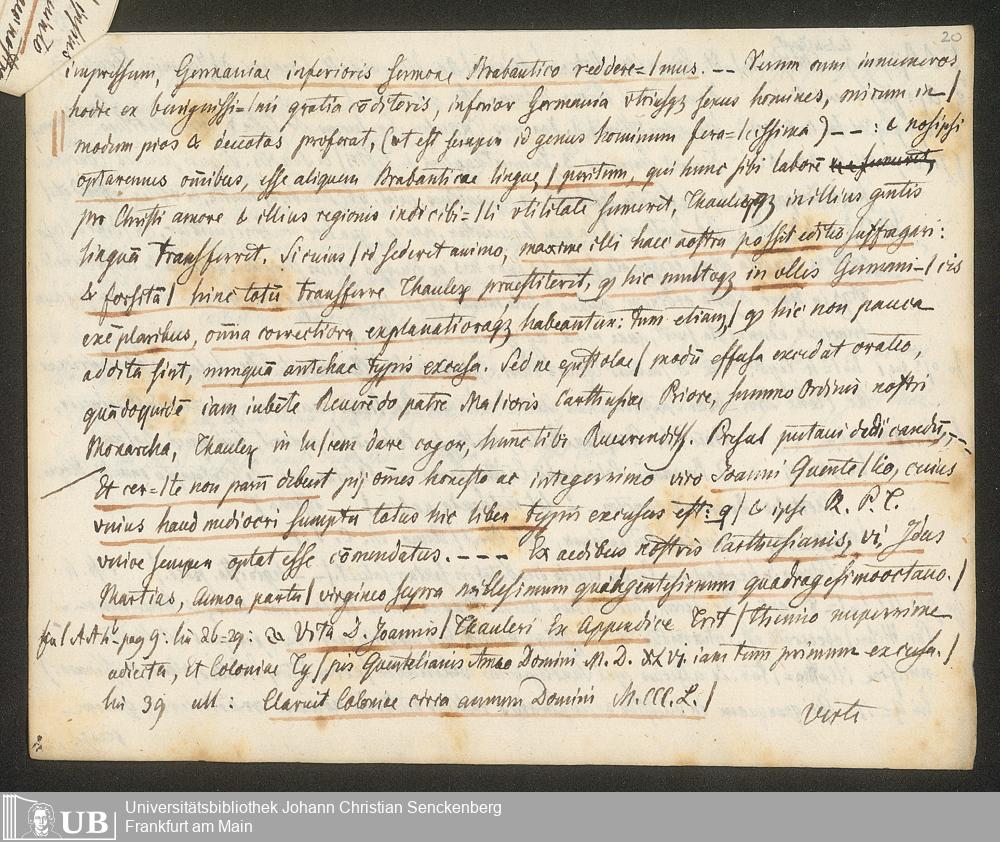 20
impressum, Germaniae inferioris sermone Brabantico reddere=/mus. -- Verum cum innumeros
hocte ex benignissi=/mi gratia cōditoris, inferior Germania vtriusqz sexus homines, mirum in-/
modum pios & deuotos proferat, (vt est semper id genus hominum fera=/cissima) -- : & nosipsi
optaremus oīnibus, esse aliquem Brabanticae lingue,/ peritum, qui hunc sibi laborē
pro Christi amore & illius regionis indicibi=/li vtilitate sumeret, Thaulerqz in illius gētis
linguā transferret. Si cuius/ id sederet animo, maxime illi haec nostra possit editio suffragari:
& forsitā/ hinc totū transferre Thauler praestiterit, qp hic multoqz in ollis Germani-/cis
exēplaribus, omnia correctiora explanatioraqz habeantur: tum etiam,/ qp hic non pauca
addita sint, nunquā antehac typis excusa. Sed ne epistolae/ modū effusa excedat oratio,
quādoquidē iam iubēte Reuerēdo patre Ma/ioris Carthusiae Priore, summo Ordinis nostri
Monarcha, Thauler in lu/cem dare cogor, hunc tibi Reuerendiss. Presul putaui dedicandū, --
Et cer=/te non parū debent pij omes honesto ac integerrimo viro Joanni Quente/lio, cuius
vnius haud mediocri sumptu totus hic liber typis excusus est: q/ & ipse R. P. T.
vnice semper optat esse cōmendatus. ---- Ex aedibus nostris Carthusianis, vi. Idus
Martias, Annoa partu/ virgineo supra millesimum quingentesimum quadragesimooctauo./
pag 9: lin 26=29: Vita D. Joannis/ Thauleri Ex Appendice Trit/themio nuperrime
adiecta, Et Coloniae Ty/pis Quentelianis Anno Domini M. D. XLVi. iam tum primum excusa./
lin 39 ult: Claruit Coloniae circa annum Domini M.CCC.L./
Verte
Universitätsbibliothek Johann Christian Senckenberg
Frankfurt am Main
UB